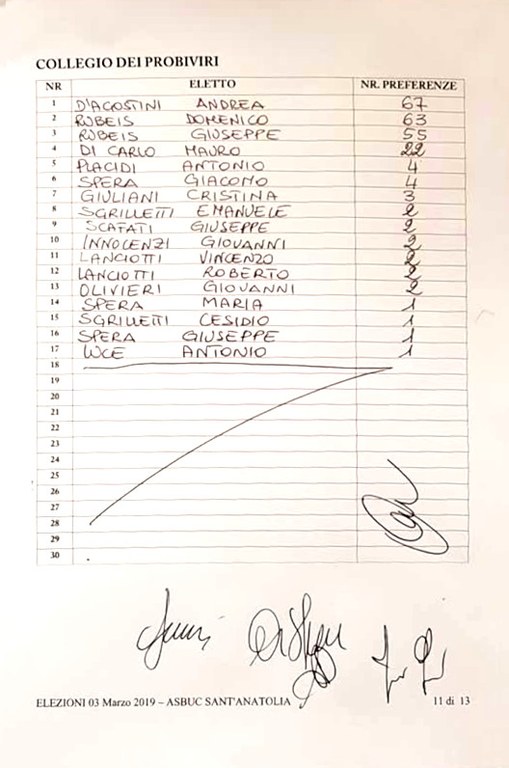 COLLEGIO DEI PROBIVIRI
NR ELETTO NR. PREFERENZE
1 D'AGOSTINI ANDREA 67
2 RUBEIS DOMENICO 63
3 RUBEIS GIUSEPPE 55
4 DI CARLO MAURO 22
5 PLACIDI ANTONIO 4
6 SPERA GIACOMO 4
7 GIULIANI CRISTINA 3
8 SGRILLETTI EMANUELE 2
9 SCAFATI GIUSEPPE 2
10 INNOCENZI GIOVANNI 2
11 LANCIOTTI VINCENZO 2
12 LANCIOTTI ROBERTO 2
13 OLIVIERI GIOVANNI 2
14 SPERA MARIA 1
15 SGRILLETTI CESIDIO 1
16 SPERA GIUSEPPE 1
17 LUCE ANTONIO 1
18
19
20
21
22
23
24
25
26
27
28
29
30
ELEZIONI 03 Marzo 2019 – ASBUC SANT'ANATOLIA 11 di 13